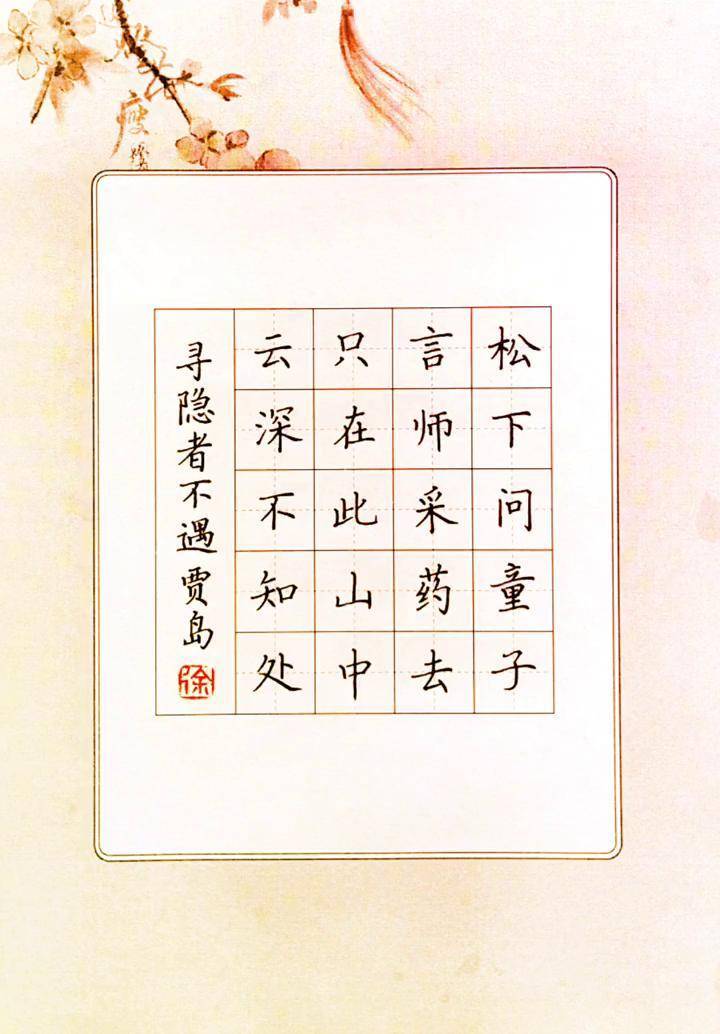 松下问童子
言师采药去
只在此山中
云深不知处
寻隐者不遇贾岛
徐
瘦